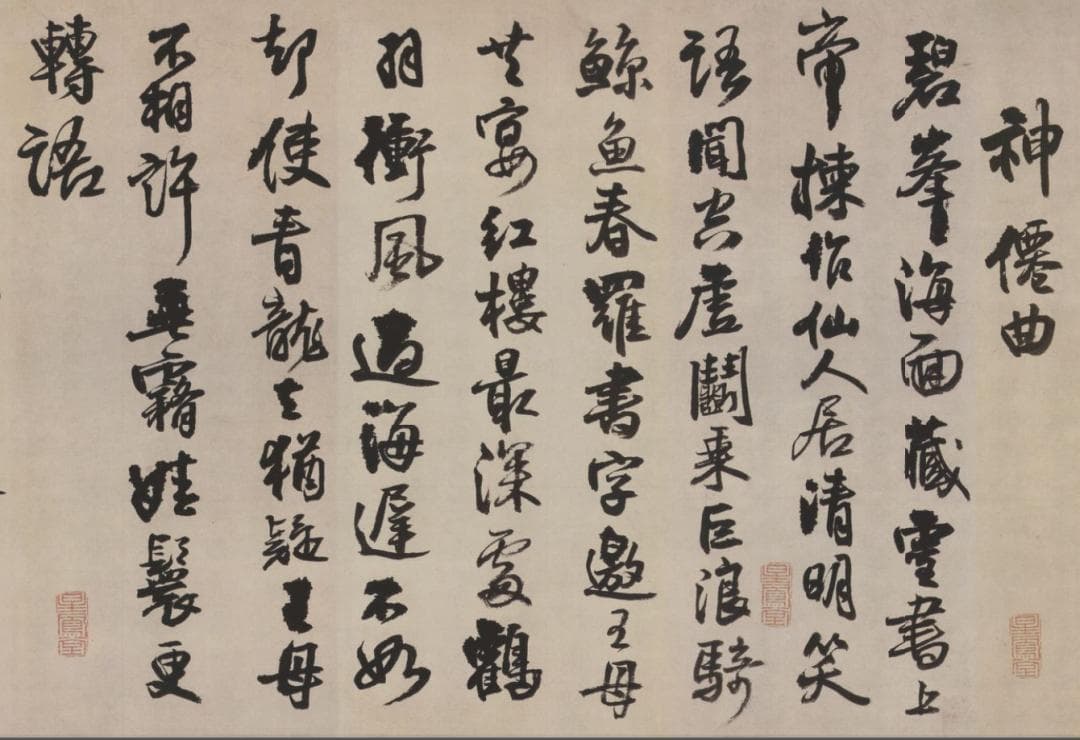 神僊曲
碧峯海面藏靈書上
帝揀作仙人居清明笑
語聞空虛鬬乘巨浪騎
鯨魚春羅書字邀王母
共宴紅樓最深處鶴
羽衝風過海遲不如
却使青龍去猶疑王母
不相許垂霧娃鬟更
轉語